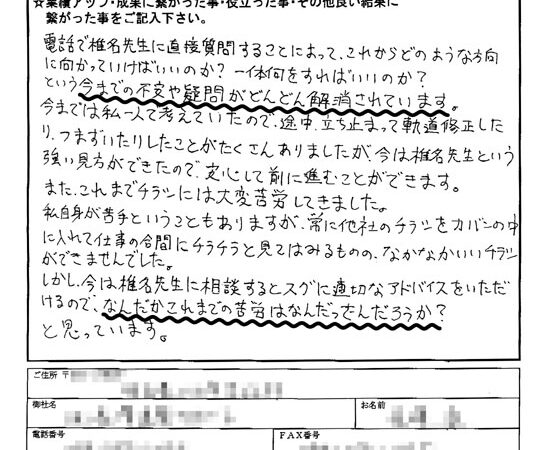 ☆業績アップ・成果に繋がった事・役立った事・その他良い結果に
繋がった事をご記入下さい。
電話で椎名先生に直接質問することによって、これからどのような方向
に向かっていけばいいのか？一体何をすればいいのか？
という今までの不安や疑問がどんどん解消されています。
今までは私一人で考えていたので、途中、立ち止まって軌道修正した
り、つまずいたりしたことがたくさんありましたが、今は椎名先生という
強い見方ができたので、安心して前に進むことができます。
また、これまでチラシには大変苦労してきました。
私自身が苦手ということもありますが、常に他社のチラシをカバンの中
に入れて仕事の合間にチラチラと見てはみるものの、なかなかいいチラシ
ができませんでした。
しかし、今は椎名先生に相談するとスグに適切なアドバイスをいただ
けるので、なんだかこれまでの苦労はなんだっさんだろうか？
と思っています。
ご住所 〒
御社名
お名前
電話番号
FAX番号